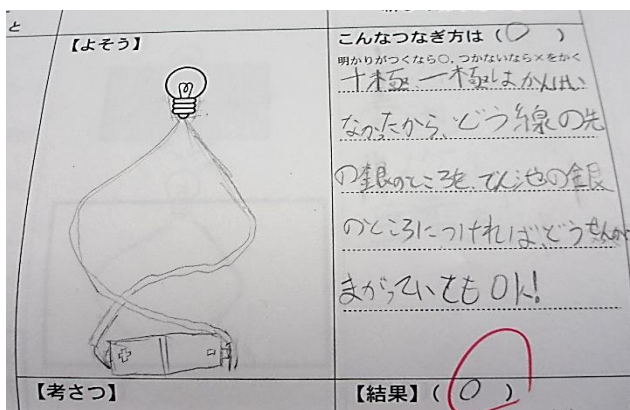 と
【よそう】
こんなつなぎ方は（○）
明かりがつくなら○，つかないなら×をかく
十極、一極はかんけい
なかったから、どう線の先
の銀のところを、でん池の銀
のところにつければ、どうせんが
まがっていてもOK!
+
-
【考さつ】
【結果】（○）